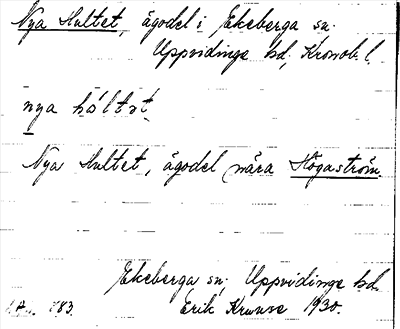 Nya Hultet, ägodel i Ekeberga sn.
Uppvidinge hd, Kronob. l.
nya hól̄tət
Nya Hultet, ägodel nära Högaström.
Ekeberga sn; Uppvidinge hd
183. Erik Kruuse 1930.